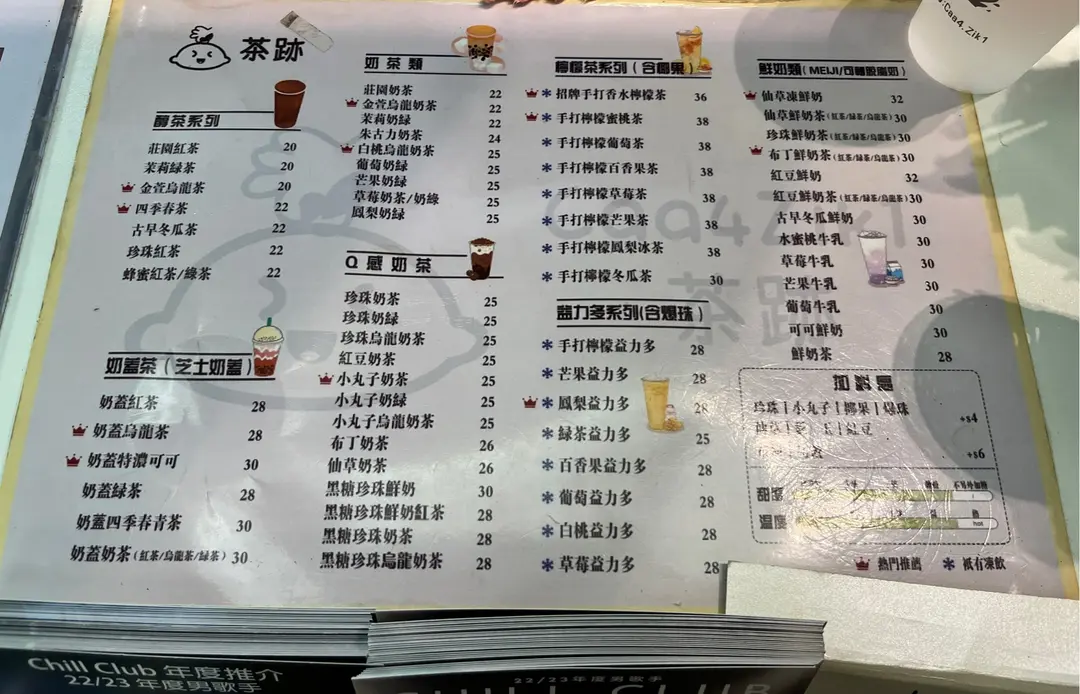 茶跡
醇茶系列
莊園紅茶 20
茉莉綠茶 20
金萱烏龍茶 20
四季春茶 22
古早冬瓜茶 22
珍珠紅茶 22
蜂蜜紅茶/綠茶 22
奶蓋茶（芝士奶蓋）
奶蓋紅茶 28
奶蓋烏龍茶 28
奶蓋特濃可可 30
奶蓋綠茶 28
奶蓋四季春青茶 30
奶蓋奶茶(紅茶/烏龍茶/綠茶) 30
奶茶類
莊園奶茶 22
金萱烏龍奶茶 22
茉莉奶綠 22
朱古力奶茶 24
白桃烏龍奶茶 25
葡萄奶綠 25
芒果奶綠 25
草莓奶茶/奶綠 25
鳳梨奶綠 25
Q感奶茶
珍珠奶茶 25
珍珠奶綠 25
珍珠烏龍奶茶 25
紅豆奶茶 25
小丸子奶茶 25
小丸子奶綠 25
小丸子烏龍奶茶 25
布丁奶茶 26
仙草奶茶 26
黑糖珍珠鮮奶 30
黑糖珍珠鮮奶紅茶 28
黑糖珍珠奶茶 28
黑糖珍珠烏龍奶茶 28
檸檬茶系列（含椰果）
招牌手打香水檸檬茶 36
*手打檸檬蜜桃茶 38
*手打檸檬葡萄茶 38
*手打檸檬百香果茶 38
*手打檸檬草莓茶 38
*手打檸檬芒果茶 38
*手打檸檬鳳梨冰茶 38
*手打檸檬冬瓜茶 30
益力多系列(含爆珠)
*手打檸檬益力多 28
*芒果益力多 28
*鳳梨益力多 28
*綠茶益力多 25
*百香果益力多 28
*葡萄益力多 28
*白桃益力多 28
*草莓益力多 28
鮮奶類(MEIJI/可轉脫脂奶)
仙草凍鮮奶 32
仙草鮮奶茶(紅茶/綠茶/烏龍茶) 30
珍珠鮮奶茶(紅茶/綠茶/烏龍茶) 30
布丁鮮奶茶(紅茶/綠茶/烏龍茶) 30
紅豆鮮奶 32
紅豆鮮奶茶(紅茶/綠茶/烏龍茶) 30
古早冬瓜鮮奶 30
水蜜桃牛乳 30
草莓牛乳 30
芒果牛乳 30
葡萄牛乳 30
可可鮮奶 30
鮮奶茶 28
珍珠|小丸子|椰果|爆珠
+$4
紅豆
+$6
甜度
不另外加糖
溫度
熱
hot
熱門推薦 * 祇有凍飲
Caa4Zik1
茶跡
.Caa4.Zik1
Chill Club 年度推介
22/23 年度男歌手
22/23年度男歌手
CHILL CLUB